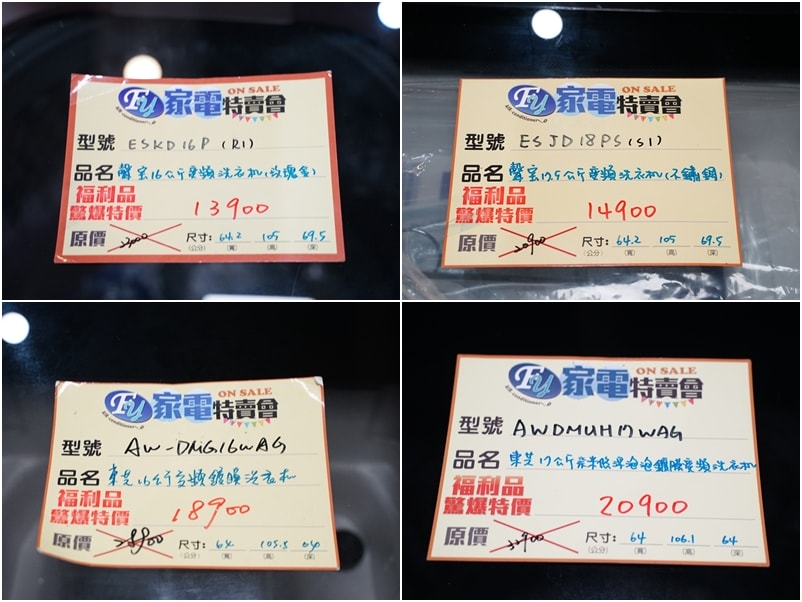 Fy 家電特賣會 ON SALE
型號 ESKD16P (R1)
品名 聲宝16公斤變頻洗衣机(玫瑰金)
福利品
驚爆特價 13900
原價 尺寸: 64.2 105 69.5
(公分) (寬) (高) (深)
Fy 家電特賣會 ON SALE
型號 ESJD18PS (S1)
品名 聲宝17.5公斤變頻洗衣机(不鏽鋼)
福利品
驚爆特價 14900
原價 20900 尺寸: 64.2 105 69.5
(公分) (寬) (高) (深)
Fy 家電特賣會 ON SALE
air conditioner
型號 AW-DMG16WAG
品名 東芝16公斤變頻鍍膜洗衣机
福利品
驚爆特價 18900
原價 28900 尺寸: 64 105.5
(公分) (寬) (高) (深)
Fy 家電特賣會 ON SALE
air conditioner
型號 AWDMUH17WAG
品名 東芝17公斤奈米悠浮泡泡鍍膜變頻洗衣机
福利品
驚爆特價 20900
原價 32900 尺寸: 64 106.1 64
(公分) (寬) (高) (深)